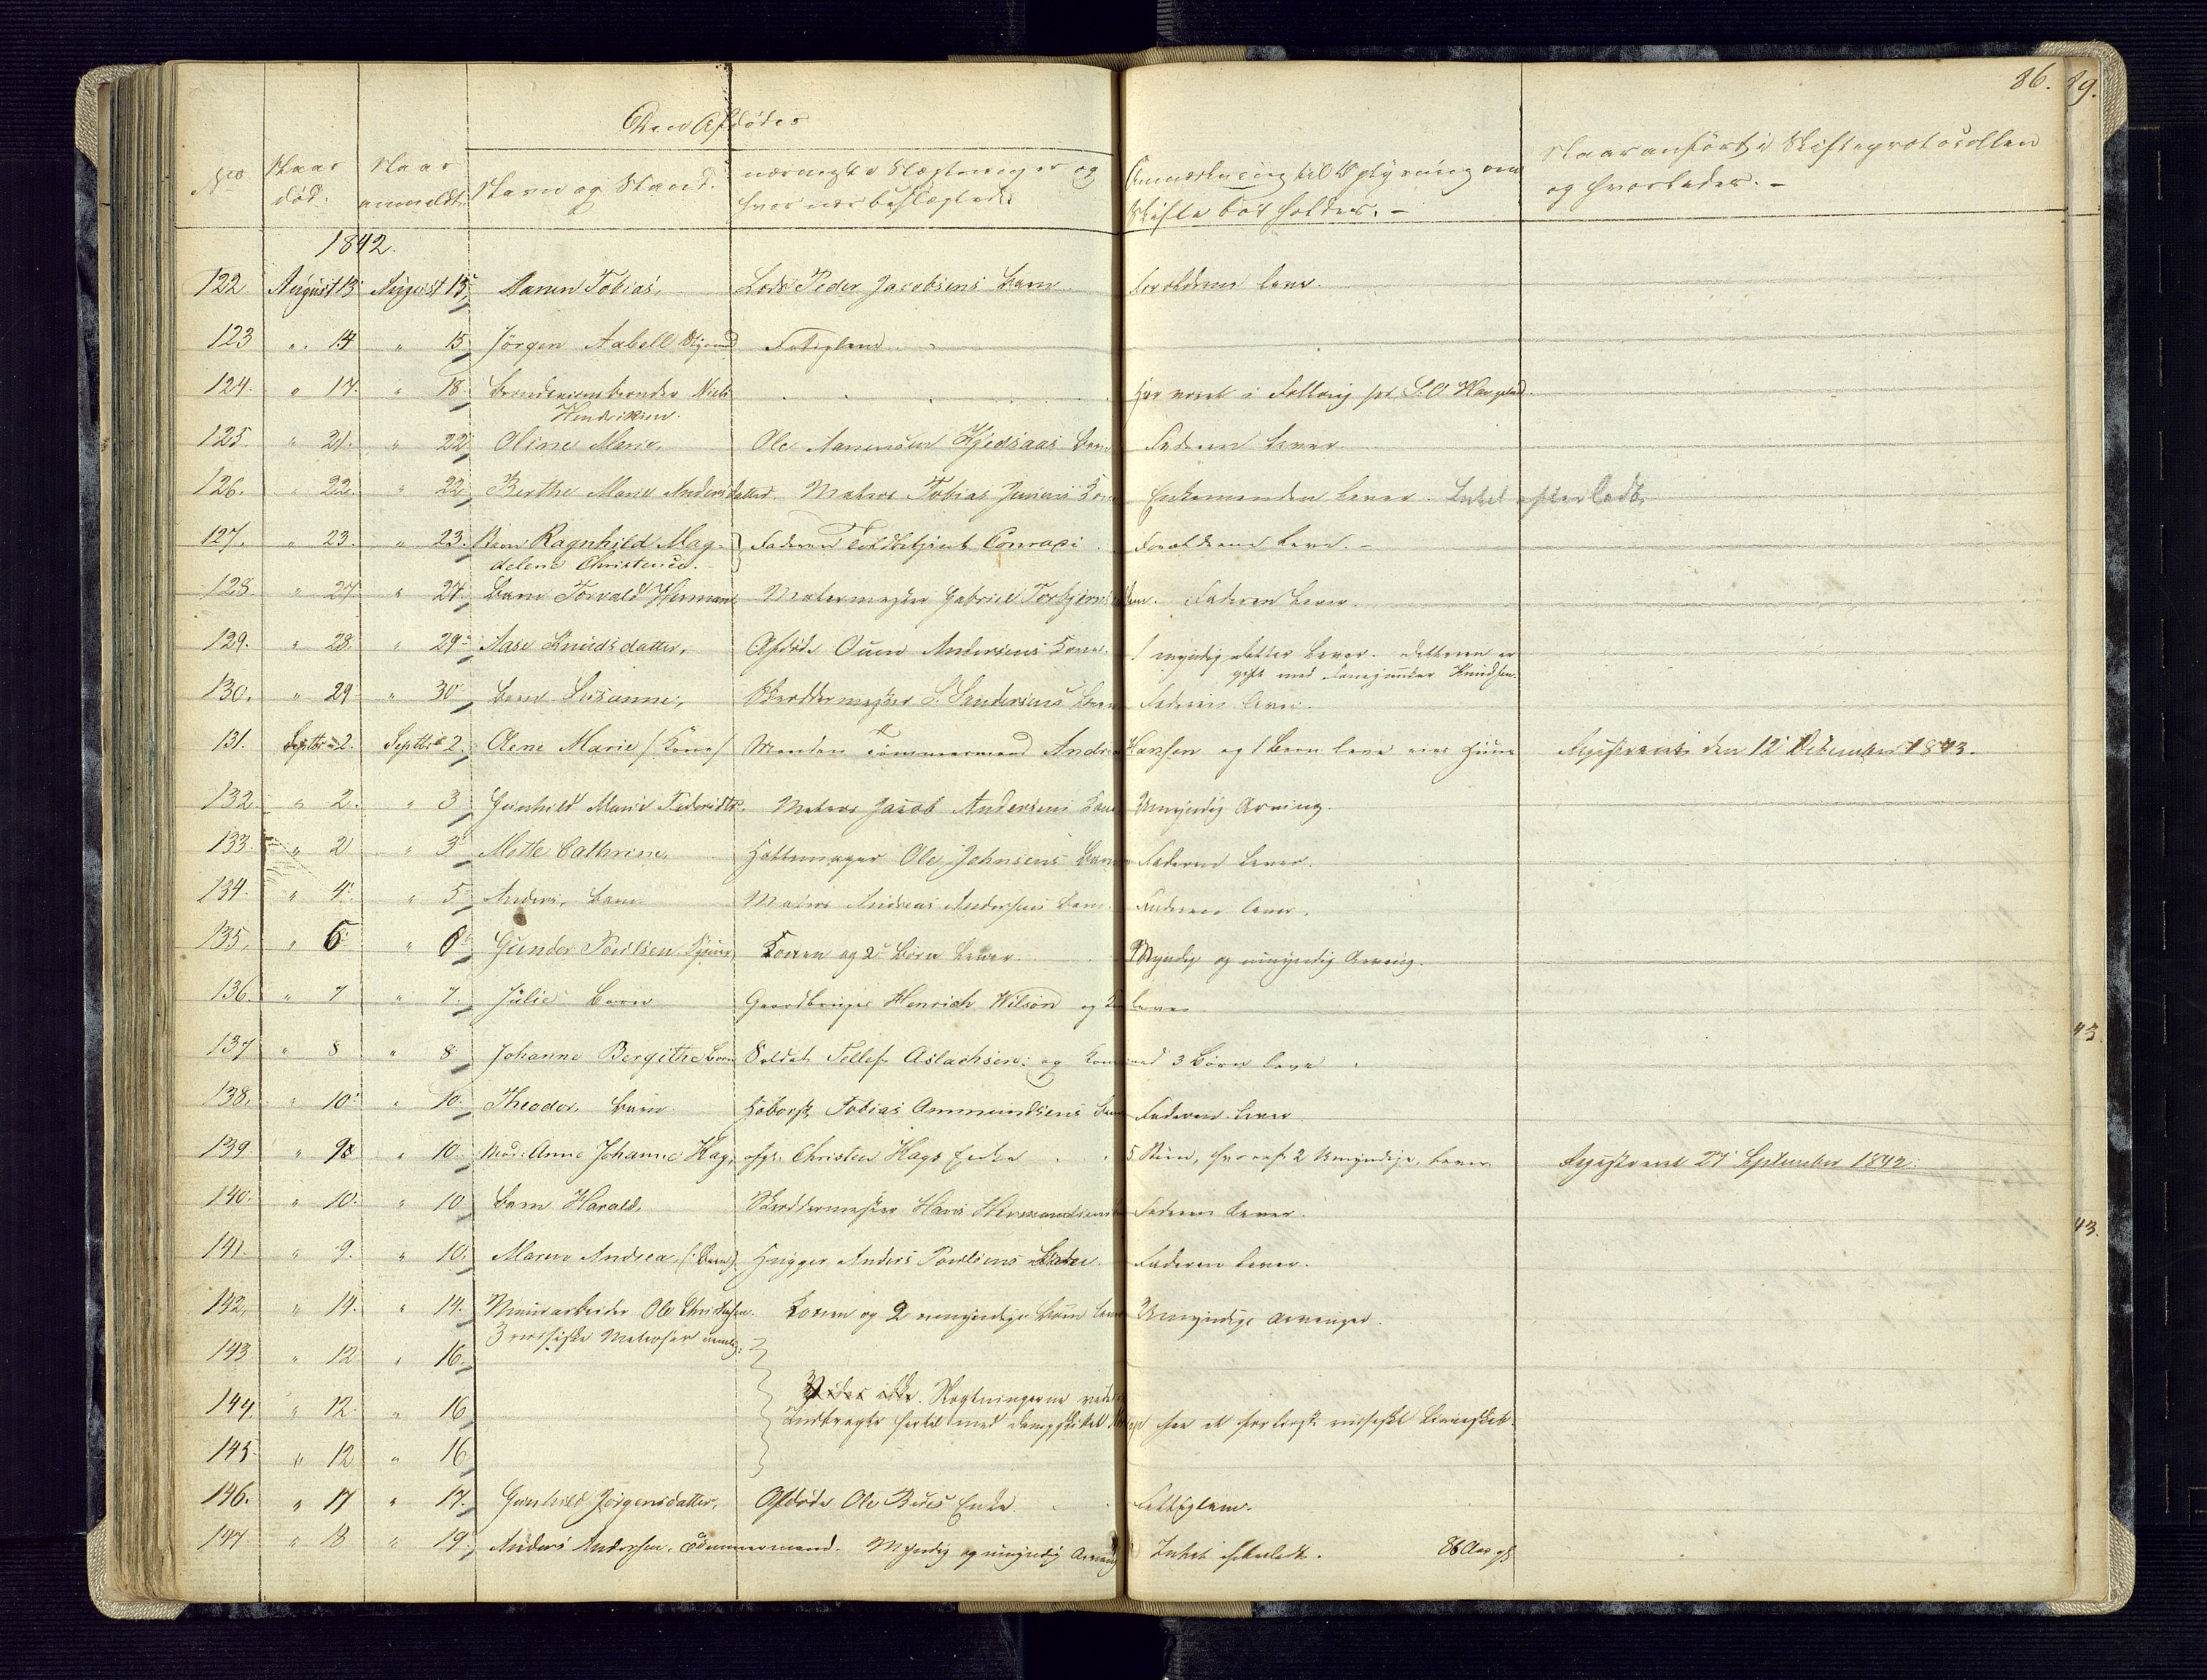 86. 89.
Den Afdødes
No Naar død. Naar anmeldt. Navn og Stand. nærmeste Slægtninger og hvor nær beslægtede Anmærkning til Oplysning om Skifte bør holdes. — Naar anført i Skifteprotocollen og hvorledes. —
1842.
122 August 13 August 15 Maren Tobias, Lods Peder Jacobsens Barn Forældrene leve.
123 " 14 " 15 Jørgen Aabell Fattiglem.
124. " 17. " 18. Brændeviinsbrænder Niels Hendriksen. Har været i Fattig
125 " 21. " 22 Oline Marie, Ole Aanensen Kjedsaas Barn Faderen lever
126. " 22. " 22 Berthe Marie Andersdatter. Matros Tobias Jensens Kone Enkemanden lever. Intet efterladt.
127. " 23. " 23. Barn Ragnhild Magdelene Christence. Faderen Toldbetjent Conradi Forældrene leve. —
128. " 27. " 27. Barn Torvald Herman Malermester Gabriel Torbjørnsen. Faderen lever.
129. " 28. " 29. Aase Knudsdatter, Afdøde Ouen Andersens Kone. 1 myndig datter lever. datteren er
gift med Knudsen.
130. " 29 " 30 Barn Susanne, Skræddermester S. Sandersens Barn Faderen lever.
131. Septbr 2. Septbr 2. Olene Marie /Kone/ Manden Tømmermand Andreas Hansen og 1 Barn leve eier Huus Registreret den 12 December 1843.
132 " 2. " 3 Gunhild Marie Federidtr. Matros Jacob Andersens Kone Umyndig Arving.
133. " 2 " 3 Mette Cathrine, Hattemager Ole Johnsens Barn Faderen lever.
134. " 4. " 5 Anders, Barn Matros Andreas Andersens Barn. Faderen lever.
135. " 6 " 6 Gunder Poulsen Konen og 2 Børn lever. Myndig og umyndig Arving.
136. " 7 " 7. Julie Barn Gaardbruger Henrich Wilson og lever
137 " 8 " 8 Johanne Bergithe Barn Soldat Tellef Aslachsen og Kone med 3 Børn leve
138. " 10 " 10. Theodor, Barn Tobias Ammundsens Barn Faderen lever
139. " 9 " 10. Anne Johanne Hag, Christen Hags Enke 5 Børn, hvoraf 2 Umyndige, lever Registreret 27 September 1842.
140. " 10. " 10 Barn Harald, Skræddermester Hans Hermandsens Faderen lever.
141. " 9. " 10. Maren Andrea, (Barn) Anders Poulsens Datter. Faderen lever.
142. " 14. " 14. Muurarbeider Ole Christensen. Konen og 2 umyndige Børn lever Umyndige arvinger.
143 " 12 " 16. 3 russiske Matroser nemlig:
144 " 12 " 16 Vides ikke. Slægtningerne
indbragte hertil med Dampskibet fra et forliist russiskt
145 " 12 " 16
146. " 17 " 17. Gunhild Jørgensdatter, Afdøde Ole Enke Fattiglem.
147 " 18 " 19. Anders Andersen, Tømmermand. Myndig og umyndig Arving Intet efterladt. 86 Aar gl
43.
43.